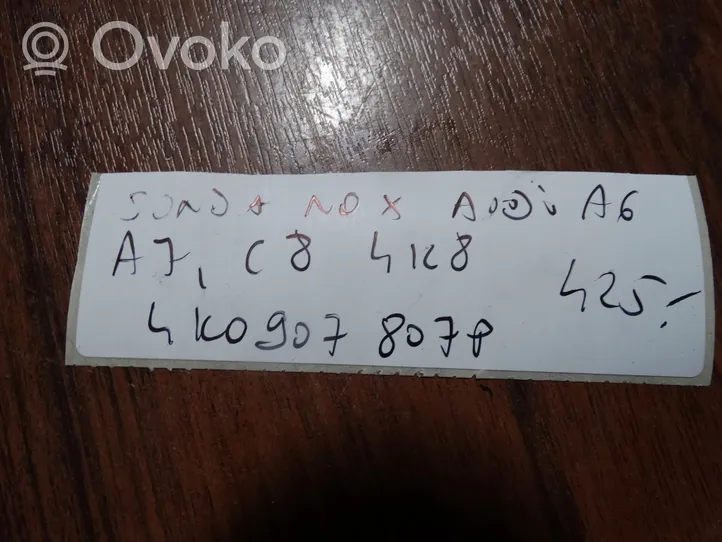 Ovoko
SONDA NOX AUDI A6
A7, C8 4K8
425,-
4K0907 807P